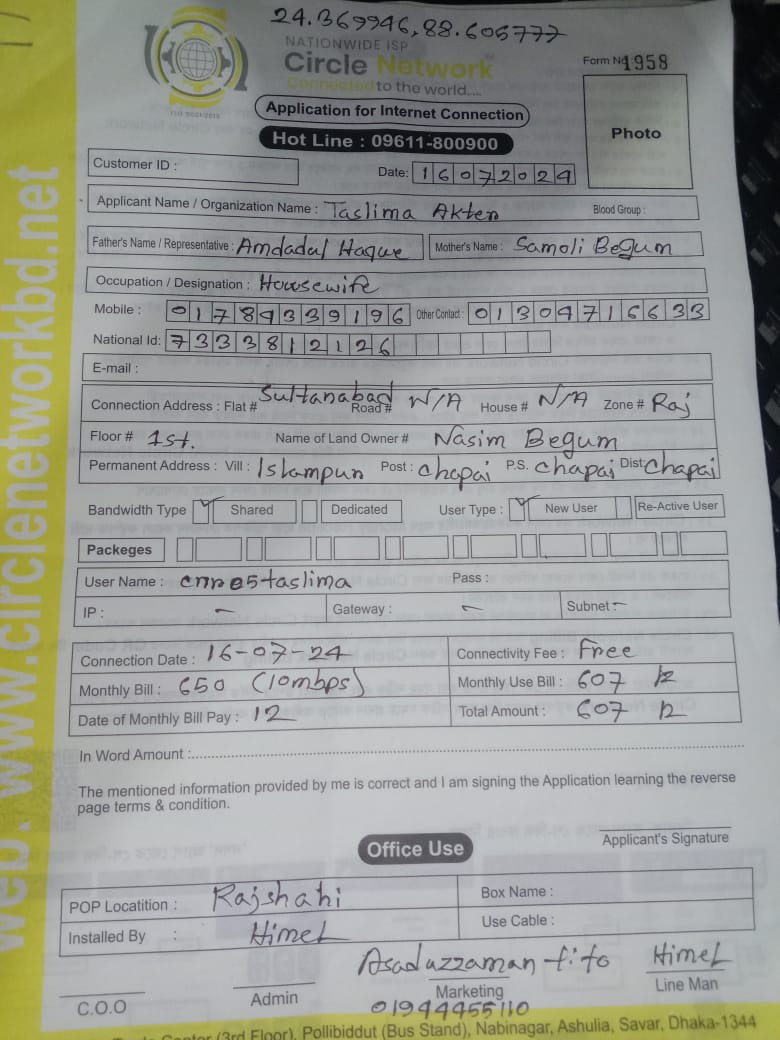 24.369946, 88.605777
NATIONWIDE ISP
Circle Network
Connected to the world....
ISO 9001:2015
Form No 1958
Application for Internet Connection
Hot Line : 09611-800900
Photo
Customer ID :
Date: 16072024
Applicant Name / Organization Name : Taslima Akter Blood Group :
Father's Name / Representative : Amdadul Haque Mother's Name : Samoli Begum
Occupation / Designation : Housewife
Mobile : 01784339196 Other Contact : 01309716633
National Id: 7333812126
E-mail :
Connection Address : Flat # Sultanabad Road # N/A House # N/A Zone # Raj
Floor # 1st. Name of Land Owner # Nasim Begum
Permanent Address : Vill : Islampur Post : chapai P.S. chapai Dist: chapai
Bandwidth Type ✓ Shared Dedicated User Type : ✓ New User Re-Active User
Packeges
User Name : cnr05taslima Pass :
IP : – Gateway : – Subnet –
Connection Date : 16-07-24 Connectivity Fee : Free
Monthly Bill : 650 (10mbps) Monthly Use Bill : 607 tk
Date of Monthly Bill Pay : 12 Total Amount : 607 tk
In Word Amount :
The mentioned information provided by me is correct and I am signing the Application learning the reverse
page terms & condition.
Applicant's Signature
Office Use
POP Locatition : Rajshahi Box Name :
Installed By : Himel Use Cable :
Asaduzzaman tito Himel
C.O.O Admin Marketing Line Man
01944455110
(3rd Floor), Pollibiddut (Bus Stand), Nabinagar, Ashulia, Savar, Dhaka-1344
web: www.circlenetworkbd.net